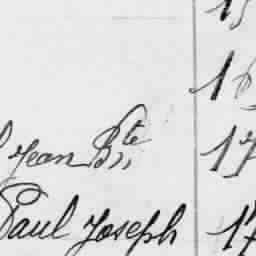 15
16
Jean Bte 17
Paul Joseph 17